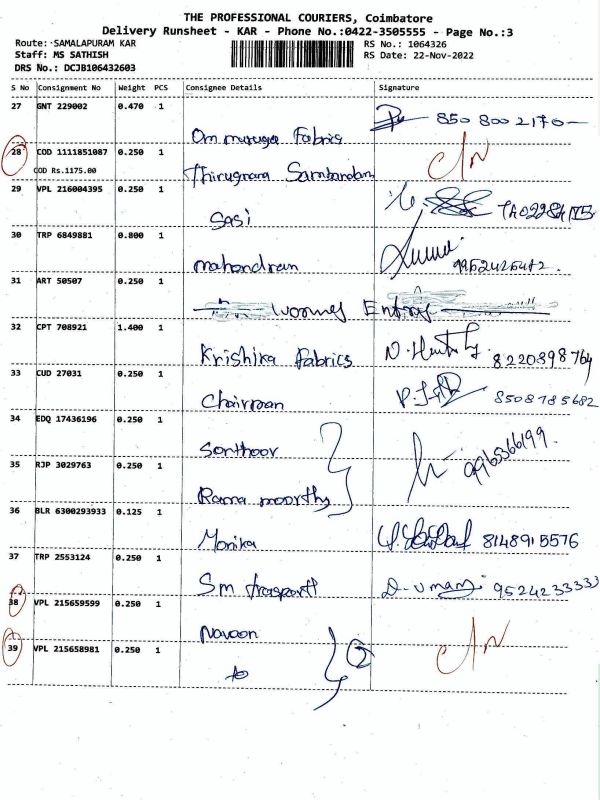 THE PROFESSIONAL COURIERS, Coimbatore
Delivery Runsheet - KAR - Phone No.:0422-3505555 - Page No.:3
Route: SAMALAPURAM KAR
RS No.: 1064326
Staff: MS SATHISH
RS Date: 22-Nov-2022
DRS No.: DCJB106432603
S No Consignment No Weight PCS Consignee Details Signature
27 GNT 229002 0.470 1
Om muruga Fabrics 850 800 2170
28 COD 1111851087 0.250 1
COD Rs.1175.00 Sambandam
29 VPL 216004395 0.250 1
Sasi
30 TRP 6849881 0.800 1
mahendran 9952426482
31 ART 50507 0.250 1
Entry
32 CPT 708921 1.400 1
Krishika Fabrics 8220898764
33 CUD 27031 0.250 1
Chairman 8508785682
34 EDQ 17436196 0.250 1
35 RJP 3029763 0.250 1
Rama moorthy
36 BLR 6300293933 0.125 1
Monika 8148915576
37 TRP 2553124 0.250 1
Sm 9524233333
38 VPL 215659599 0.250 1
39 VPL 215658981 0.250 1
to 2